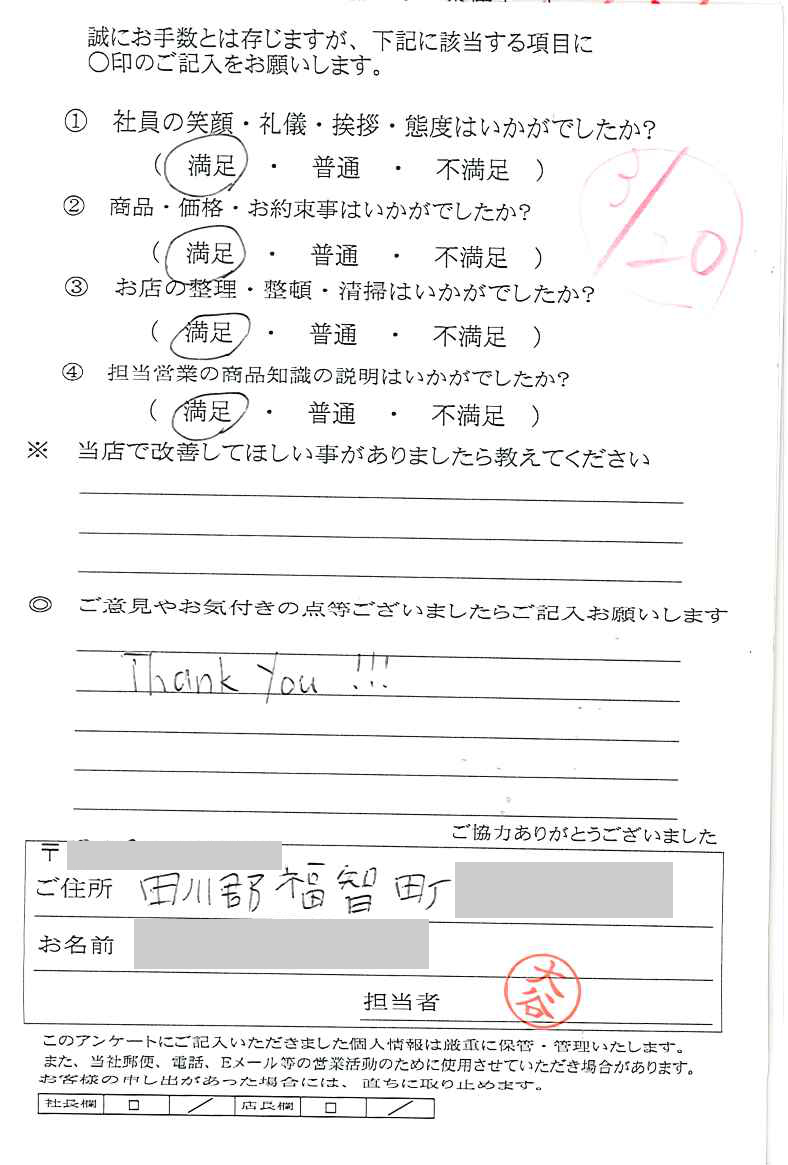 誠にお手数とは存じますが、下記に該当する項目に
〇印のご記入をお願いします。
① 社員の笑顔・礼儀・挨拶・態度はいかがでしたか?
( 満足 ・ 普通 ・ 不満足 )
3/20
② 商品・価格・お約束事はいかがでしたか?
( 満足 ・ 普通 ・ 不満足 )
③ お店の整理・整頓・清掃はいかがでしたか?
( 満足 ・ 普通 ・ 不満足 )
④ 担当営業の商品知識の説明はいかがでしたか?
( 満足 ・ 普通 ・ 不満足 )
※ 当店で改善してほしい事がありましたら教えてください
◎ ご意見やお気付きの点等ございましたらご記入お願いします
Thank You !!!
ご協力ありがとうございました
〒
ご住所 田川郡福智町
お名前
担当者 大谷
このアンケートにご記入いただきました個人情報は厳重に保管・管理いたします。
また、当社郵便、電話、Eメール等の営業活動のために使用させていただき場合があります。
お客様の申し出があった場合には、直ちに取り止めます。
社長欄 □ / 店長欄 □ /